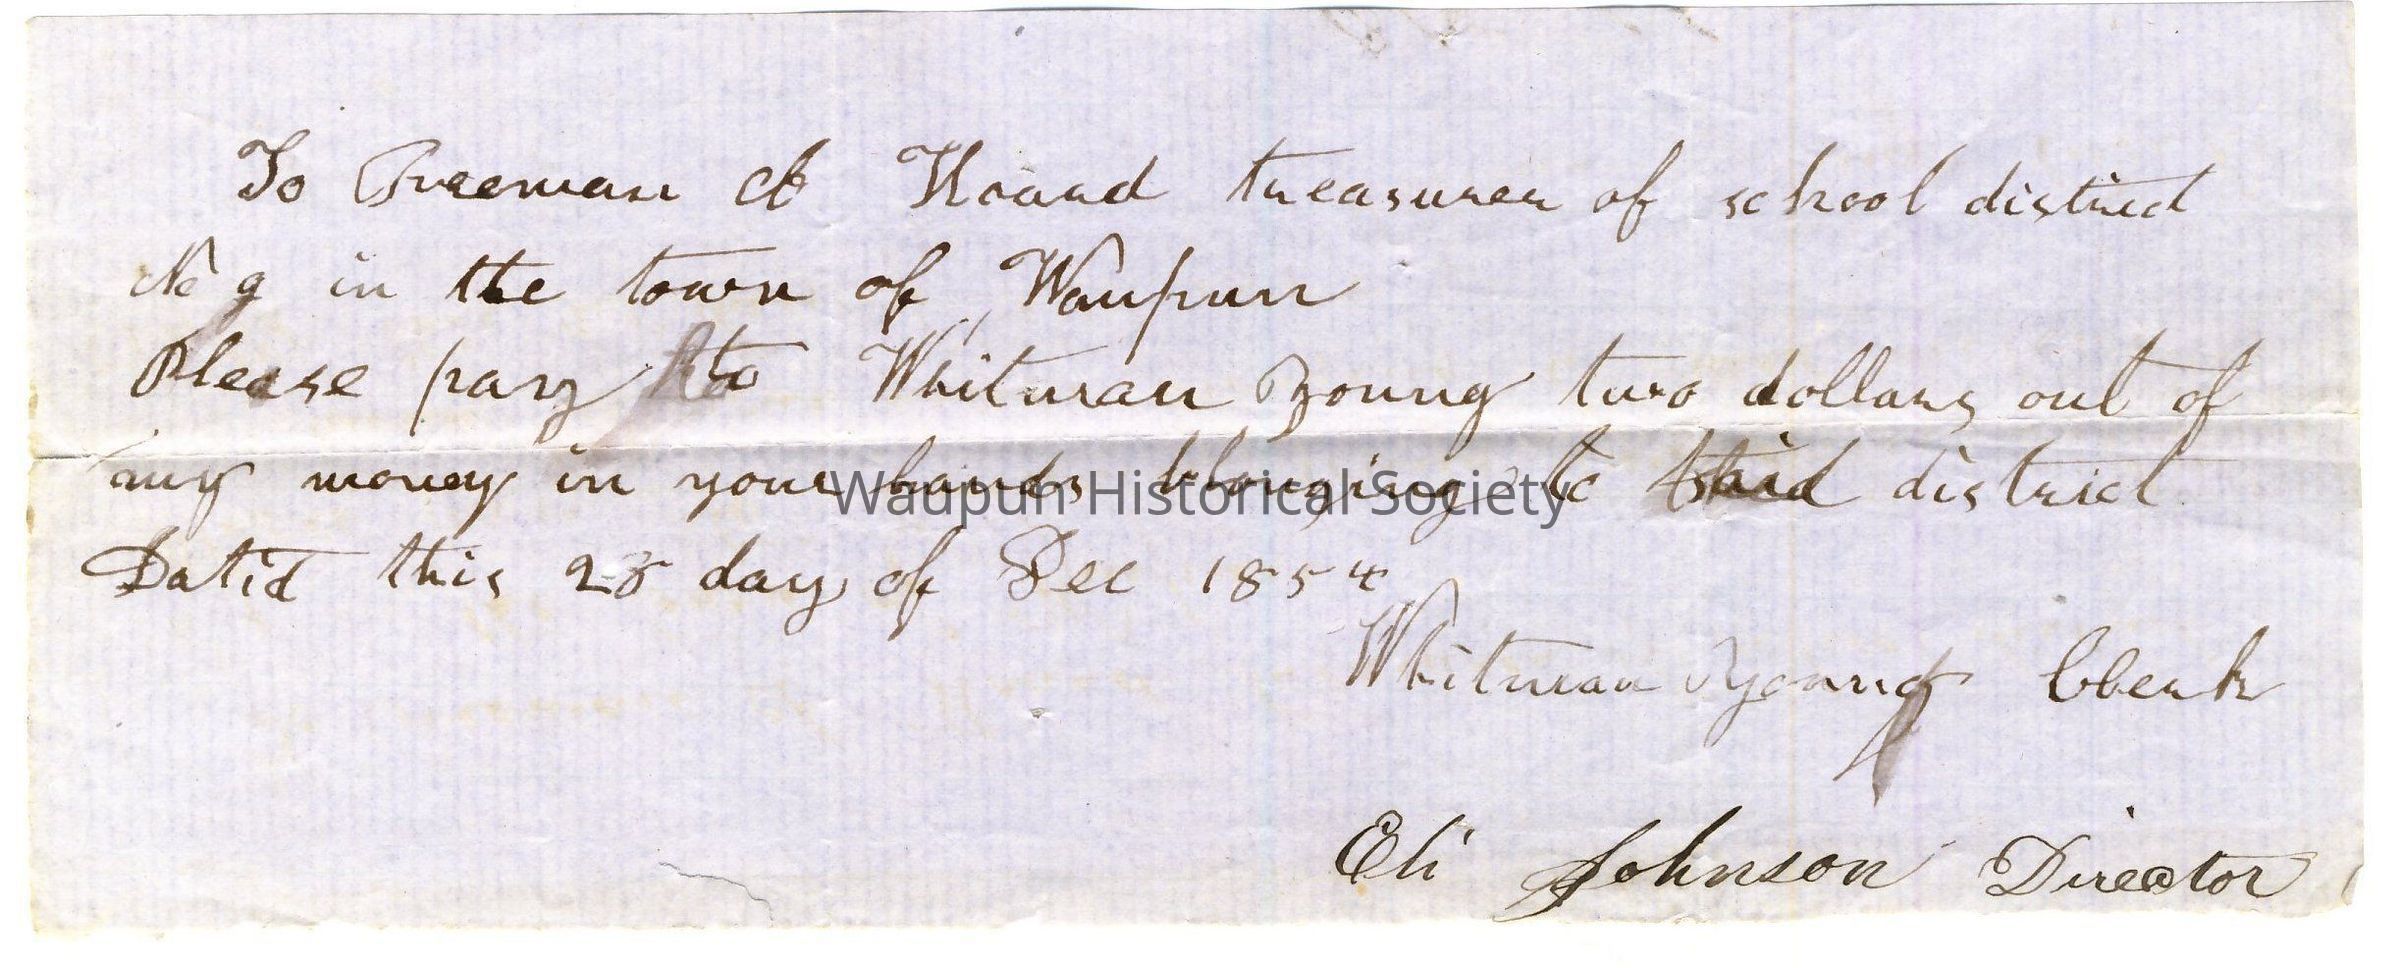 To Freeman A Hoard treasurer of school district
No 9 in the town of Waupun
Please pay to Whitman Young two dollars out of
any money in your hands belonging to said district
Dated this 28 day of Dec 1854
Whitman Young Clerk
Eli Johnson Director
Waupun Historical Society